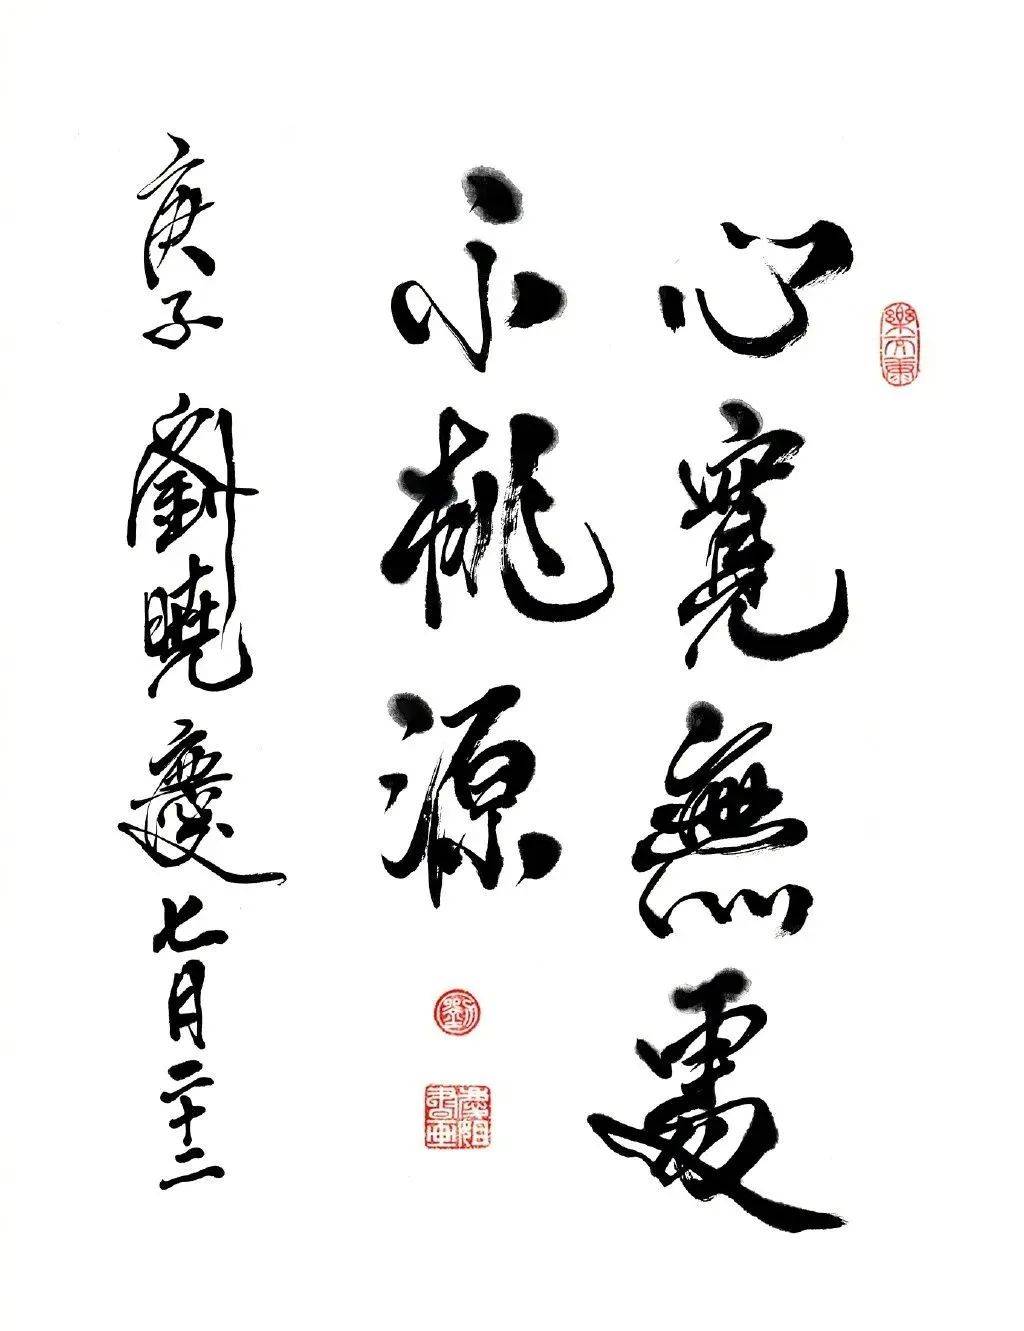 心寬無處
不桃源
庚子 劉曉慶 七月二十二
劉